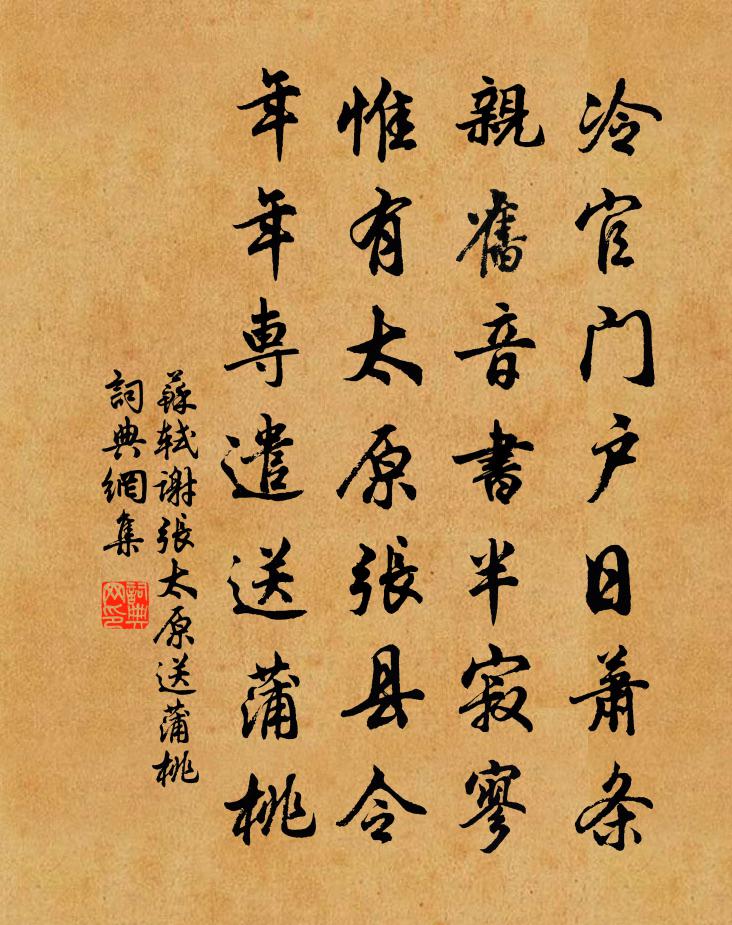 冷官门户日萧条
親舊音書半寂寥
惟有太原張县令
年年専遣送蒲桃
蘇轼谢張太原送蒲桃
詞典網集
詞典网印